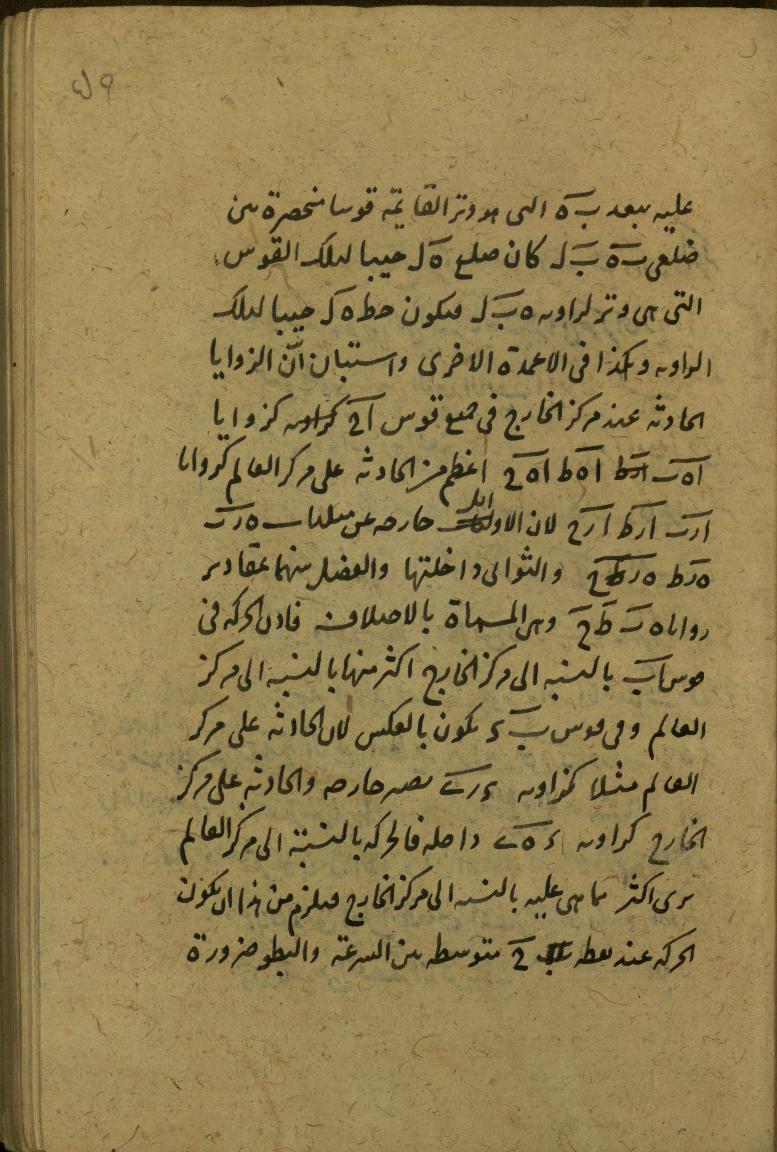 عليه ببعد ب ه التى هو وتر القايمة قوسا منحصرة بين
ضلعى ب ه ب ل كان ضلع ه ل جيبا لتلك القوس
التى هى وتر لزاويه ه ب ل فيكون خط ه ل جيبا لتلك
الزاويه وهكذا فى الاعمدة الاخرى واستبان ان الزوايا
الحادثه عند مركز الخارج فى جميع قوس ا ح كزوايا
ا ه ب ا ه ط ا ه ح اعظم من الحادثه على مركز العالم كزوايا
ا ر ب ا ر ط ا ر ح لان الاوايل خارجه عن مثلثات ه ر ب
ه ر ط ه ر ح والثوالى داخلتها والفضل بينهما بمقادير
زوايا ه ب ط ح وهى المسماة بالاختلاف فاذن الحركه فى
قوس ا ب بالنسبه الى مركز الخارج اكثر منها بالنسبه الى مركز
العالم وفى قوس ب ء يكون بالعكس لان الحادثه على مركز
العالم مثلا كزاويه ء ر ى تصير خارجه والحادثه على مركز
الخارج كزاويه ء ه ى داخله فالحركه بالنسبة الى مركز العالم
ترى اكثر مما هى عليه بالنسبه الى مركز الخارج فيلزم من هذا ان يكون
الحركه عند نقطه ح متوسطه بين السرعة والبطو ضرورة